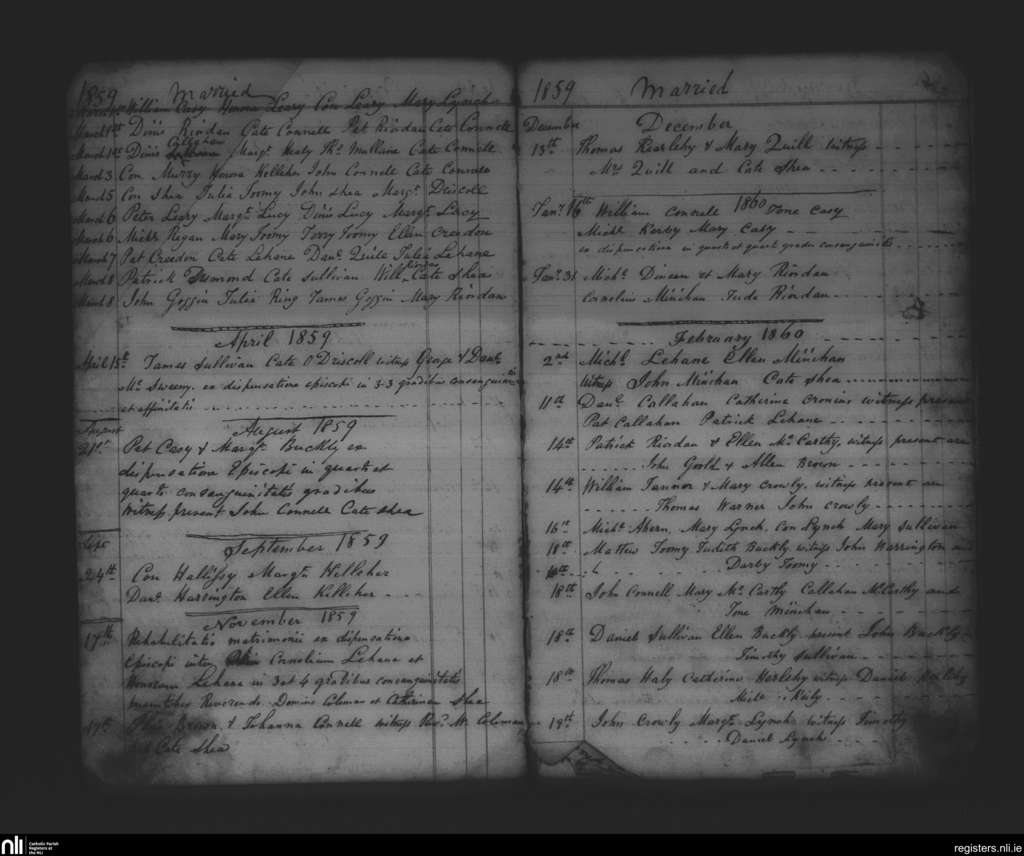 1859 Married
March 1st William Casy Honora Leary Con Leary Mary Lynch
March 1st Dinis Riordan Cate Connell Pat Riordan Cate Connell
Callaghan
March 1st Dinis Margt. Healy Ths. Mullane Cate Connell
March 3 Con Murry Honora Kelleher John Connell Cate Connell
March 5 Con Shea Julia Toomy John Shea Margt. Driscoll
March 6 Peter Leary Margt. Lucy Dinis Lucy Margt. Lucy
March 6 Michl. Regan Mary Toomy Terry Toomy Ellen Creedon
March 7 Pat Creedon Cate Lehane Danl. Quill Julia Lehane
March 8 Patrick Desmond Cate Sullivan Will. Cate Shea
March 8 John Goggin Julia Ring James Goggin Mary Riordan
April 1859
April 15th James Sullivan Cate O'Driscoll witness George & Danl.
Mc Sweeny. ex dispensatione episcopi in 3-3 gradibus consanguinitatis
et affinitatis
August August 1859
21st Pat Casy & Margt. Buckly ex
dispensatione Episcopi in quarto et
quarto consanguinitatis gradibus
Witness present John Connell Cate Shea
Sept September 1859
24th Con Hallissy Margt. Kelleher
Danl. Harrington Ellen Kelliher
November 1859
17th Rehabilitatio matrimonii ex dispensatione
Episcopi inter Cornelium Lehane et
Honoram Lehane in 3 et 4 gradibus consanguinitatis
presentibus Reverendo Domino Coleman et Catherina Shea
19th Brown & Johanna Connell witness Revd. Mr. Coleman
Cate Shea
1859 Married
December December
13th Thomas Kearlehy & Mary Quill witness
Mrs Quill and Cate Shea
1860
Jany. 16th William Connell Jone Casy
Michl. Kerby Mary Casy
ex dispensatione in quarto et quarto gradu consanguinitatis
Jany. 31 Michl. Dineen & Mary Riordan
Cornelius Minihan Jude Riordan
February 1860
2nd Michl. Lehane Ellen Minihan
Witness John Minihan Cate Shea
11th Danl. Callahan Catherine Cronins witness present
Pat Callahan Patrick Lehane
14th Patrick Riordan & Ellen Mc Carthy, witness present are
John Goold & Allen Brown
14th William Tannor & Mary Crowly, witness present are
Thomas Warner John Crowly
16th Michl. Ahern, Mary Lynch, Con Lynch Mary Sullivan
18th Mathew Toomy Judith Buckly witness John Warrington and
Darby Toomy
18th John Connell Mary Mc Carthy Callahan McCarthy and
Jone Minihan
18th Daniel Sullivan Ellen Buckly present John Buckly
Timothy Sullivan
18th Thomas Haly Catherine Herlihy witness Daniel Herlihy
Michl.
19th John Crowly Margt. Lynch witness Timothy
Daniel Lynch
nli Catholic Parish
Registers at
the NLI
registers.nli.ie